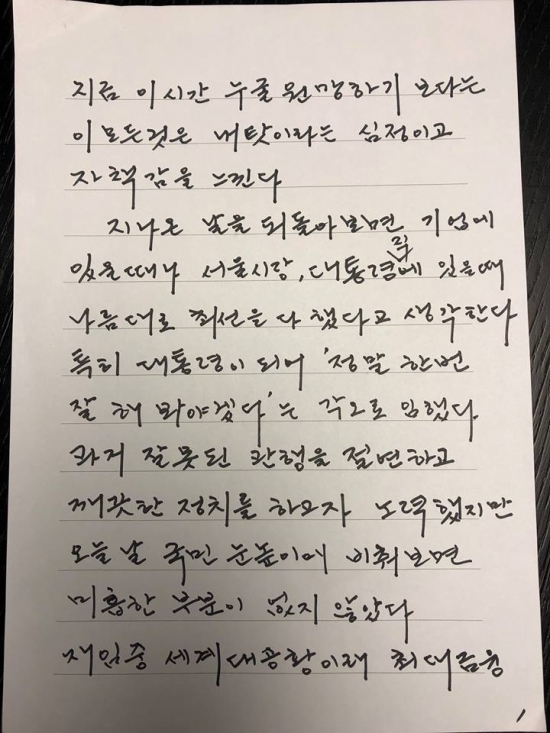 지금 이 시간 누굴 원망하기 보다는
이 모든것은 내탓이라는 심정이고
자책감을 느낀다
지나온 날을 되돌아보면 기업에
있을때나 서울시장, 대통령직에 있을때
나름대로 최선을 다 했다고 생각한다
특히 대통령이 되어 '정말 한번
잘 해 봐야겠다'는 각오로 임했다
과거 잘못된 관행을 절연하고
깨끗한 정치를 하고자 노력했지만
오늘 날 국민 눈높이에 비춰보면
미흡한 부분이 없지 않았다
재임중 세계대공황이래 최대금융
1